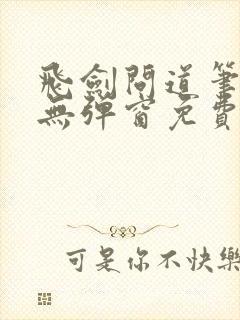 飛劍問道筆
無彈窗免費
可是你不快樂